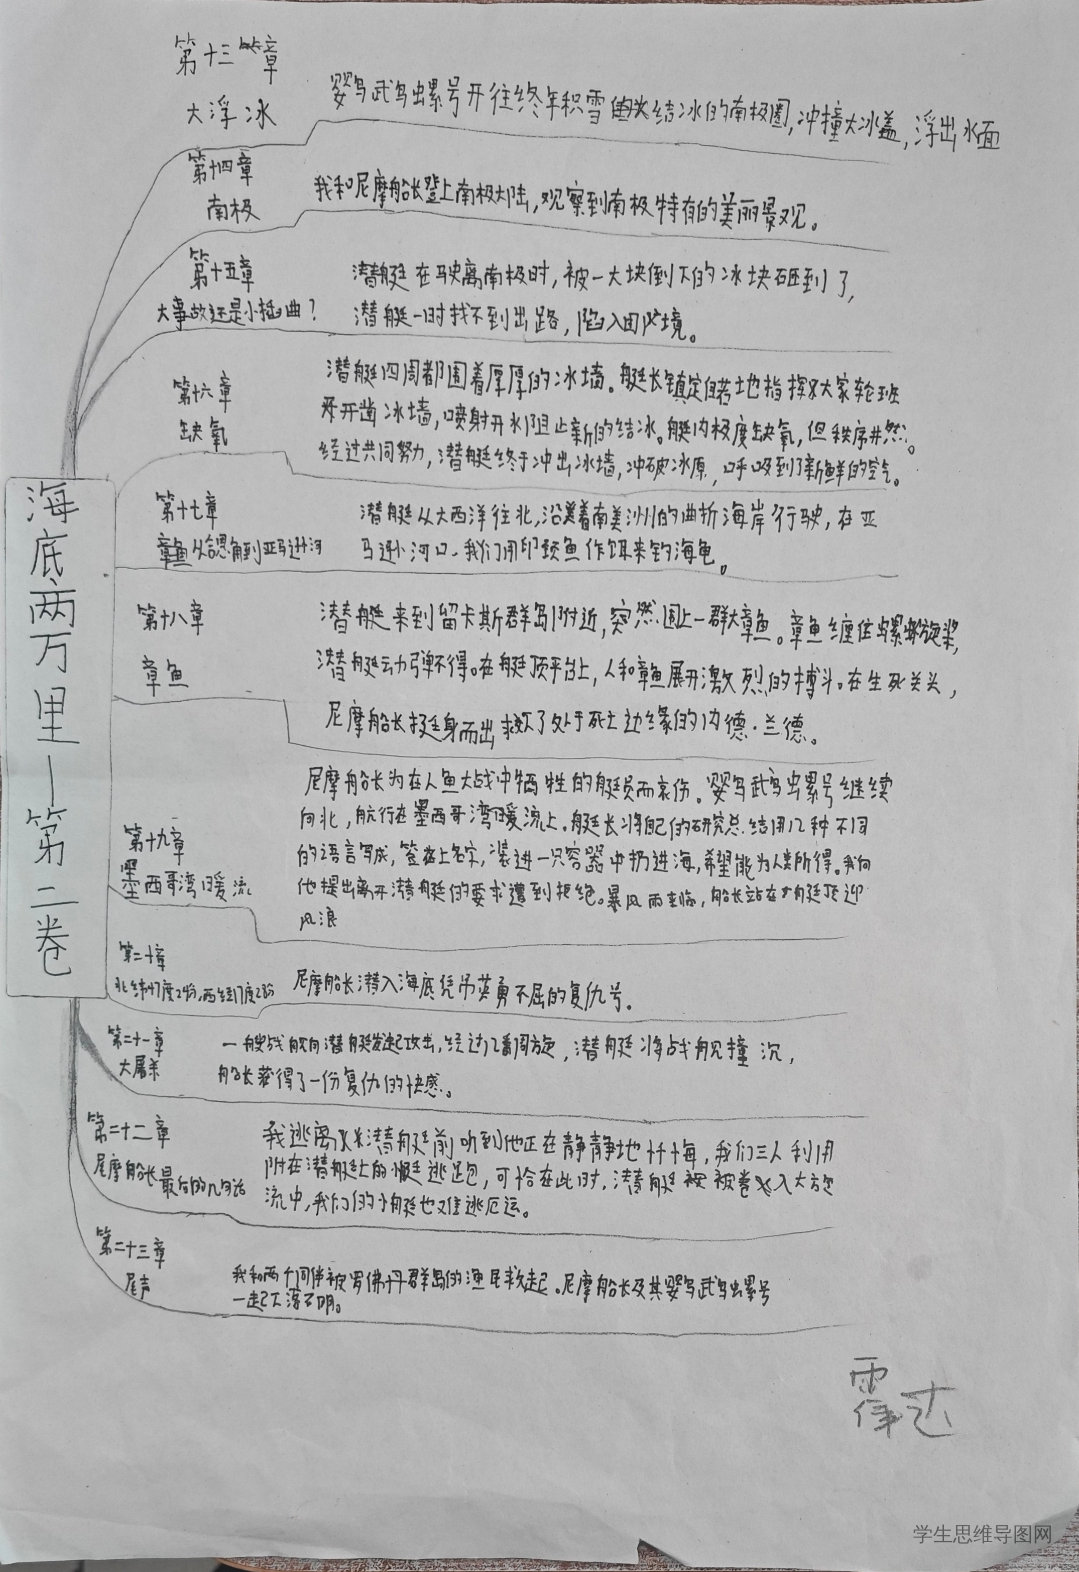 海底两万里—第二卷
第十三章
大浮冰
鹦鹉螺号开往终年积雪结冰的南极圈,冲撞大冰盖,浮出水面
第十四章
南极
我和尼摩船长登上南极大陆,观察到南极特有的美丽景观。
第十五章
大事故还是小插曲?
潜艇在驶离南极时,被一大块倒下的冰块砸到了,
潜艇一时找不到出路,陷入困境。
第十六章
缺氧
潜艇四周都围着厚厚的冰墙。艇长镇定自若地指挥大家轮班
开凿冰墙,喷射开水阻止新的结冰。艇内极度缺氧,但秩序井然。
经过共同努力,潜艇终于冲出冰墙,冲破冰原,呼吸到了新鲜的空气。
第十七章
章鱼从合恩角到亚马逊河
潜艇从大西洋往北,沿着南美洲的曲折海岸行驶,在亚
马逊河口,我们用印颈鱼作饵来钓海龟。
第十八章
章鱼
潜艇来到留卡斯群岛附近,突然围上一群大章鱼。章鱼缠住螺旋桨,
潜艇动弹不得。在艇顶平台上,人和章鱼展开激烈的搏斗。在生死关头,
尼摩船长挺身而出救了处于死亡边缘的内德·兰德。
第十九章
墨西哥湾暖流
尼摩船长为在人鱼大战中牺牲的艇员而哀伤。鹦鹉螺号继续
向北,航行在墨西哥湾暖流上。艇长将自己的研究总结用几种不同
的语言写成,签上名字,装进一只容器中扔进海,希望能为人类所得。我向
他提出离开潜艇的要求遭到拒绝。暴风雨来临,船长站在艇顶迎
风浪
第二十章
北纬47度24分,西经17度28分
尼摩船长潜入海底凭吊英勇不屈的复仇号。
第二十一章
大屠杀
一艘战舰向潜艇发起攻击,经过几番周旋,潜艇将战舰撞沉,
船长获得了一份复仇的快感。
第二十二章
尼摩船长最后的几句话
我逃离潜艇前听到他正在静静地忏悔,我们三人利用
附在潜艇上的小艇逃跑,可恰在此时,潜艇被卷入大旋
流中,我们的小艇也难逃厄运。
第二十三章
尾声
我和两个同伴被罗佛丹群岛的渔民救起。尼摩船长及其鹦鹉螺号
一起下落不明。
学生思维导图网